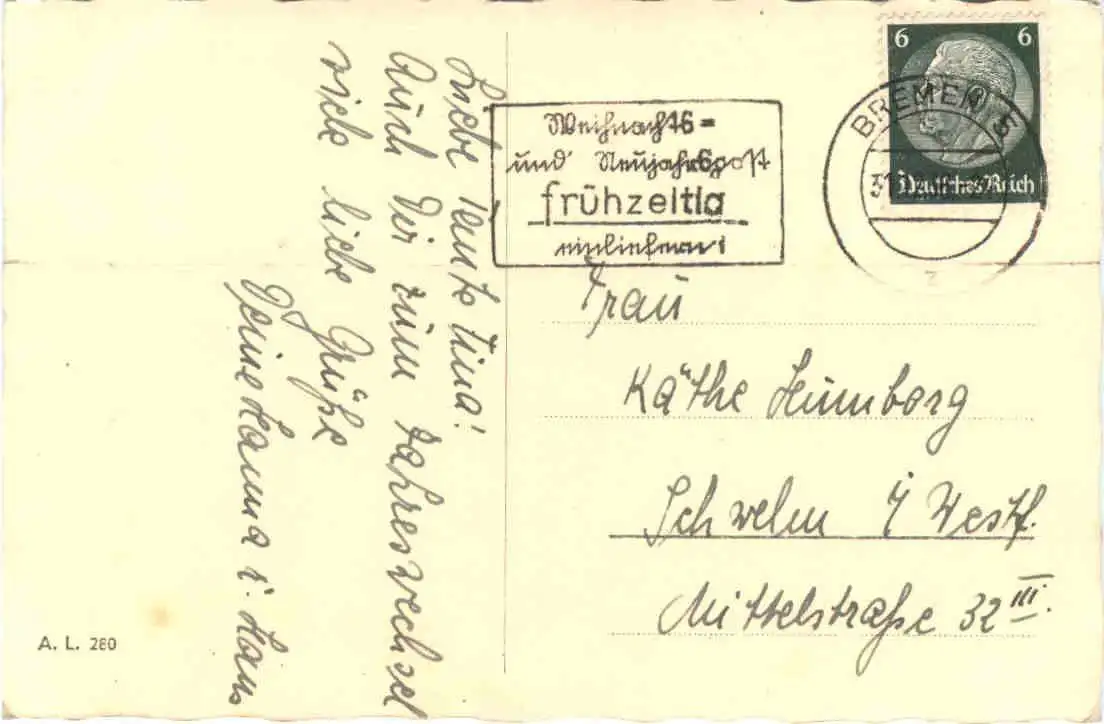 Liebe Tante Tina!
Auch Dir zum Jahreswechsel
viele liebe Grüße
Deine Hanna u. Hans
A. L. 280
Weihnachts=
und Neujahrspost
frühzeitig
einliefern!
6 6
Deutsches Reich
BREMEN 5
Frau
Käthe Humborg
Schwelm i/ Westf.
Mittelstraße 32 III.